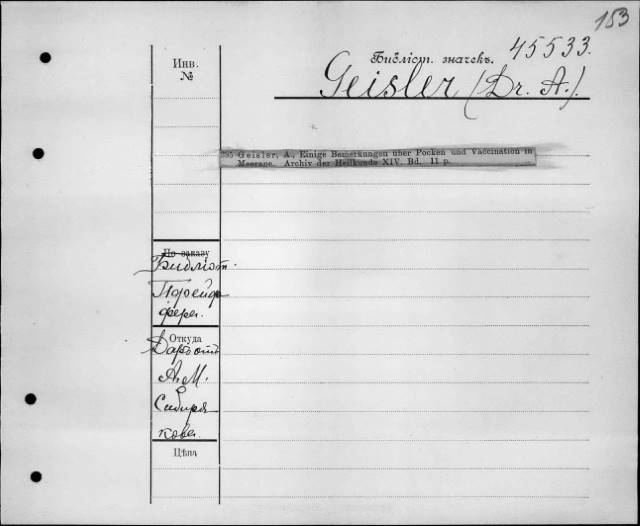 153
Библіот. значекъ. 45533.
Инв.
№
Geisler (Dr. A.).
395 Geisler, A., Einige Bemerkungen über Pocken und Vaccination in
Meerane. Archiv der Heilkunde XIV. Bd. 11 p.
По заказу
Библіот.
Пфейф
фера.
Откуда
А. М.
Сибиря
кова.
Цѣна